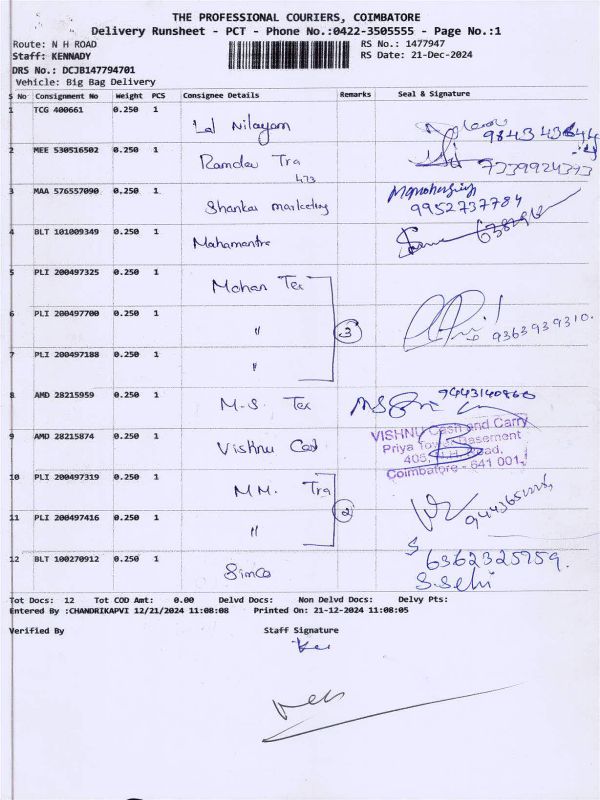 THE PROFESSIONAL COURIERS, COIMBATORE
Delivery Runsheet - PCT - Phone No.:0422-3505555 - Page No.:1
Route: N H ROAD RS No.: 1477947
Staff: KENNADY RS Date: 21-Dec-2024
DRS No.: DCJB147794701
Vehicle: Big Bag Delivery
S No Consignment No Weight PCS Consignee Details Remarks Seal & Signature
1 TCG 400661 0.250 1 Lal Nilayam
2 MEE 530516502 0.250 1 Ramdev Tra 7339924393
473
3 MAA 576557090 0.250 1 Shankar marketing 9952737784
4 BLT 101009349 0.250 1 Mahamantra
5 PLI 200497325 0.250 1 Mohan Tex
6 PLI 200497700 0.250 1 " 3 9363939310.
7 PLI 200497188 0.250 1 "
8 AMD 28215959 0.250 1 M.S. Tex 9443140860
9 AMD 28215874 0.250 1 Vishnu Cas
VISHNU Cash and Carry
Priya Tower Basement
405, N.H. Road,
Coimbatore - 641 001.
10 PLI 200497319 0.250 1 M.M. Tra
11 PLI 200497416 0.250 1 " 2
12 BLT 100270912 0.250 1 Simco 6362325959.
S.Selvi
Tot Docs: 12 Tot COD Amt: 0.00 Delvd Docs: Non Delvd Docs: Delvy Pts:
Entered By :CHANDRIKAPVI 12/21/2024 11:08:08 Printed On: 21-12-2024 11:08:05
Verified By Staff Signature